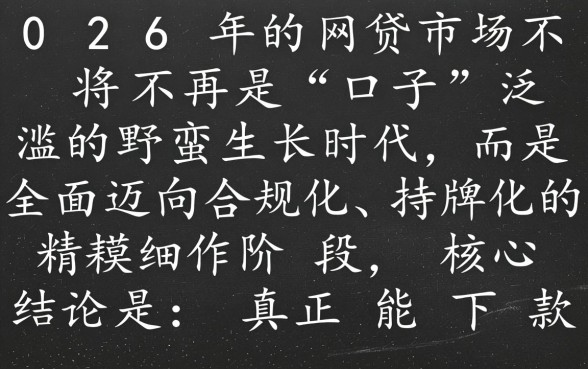 0 2 6 年的网贷市场不
将不再是“口子”泛
滥的野蛮生长时代，而是
全面迈向合规化、持牌化的
精耕细作阶 段， 核心
结论是： 真正 能 下 款